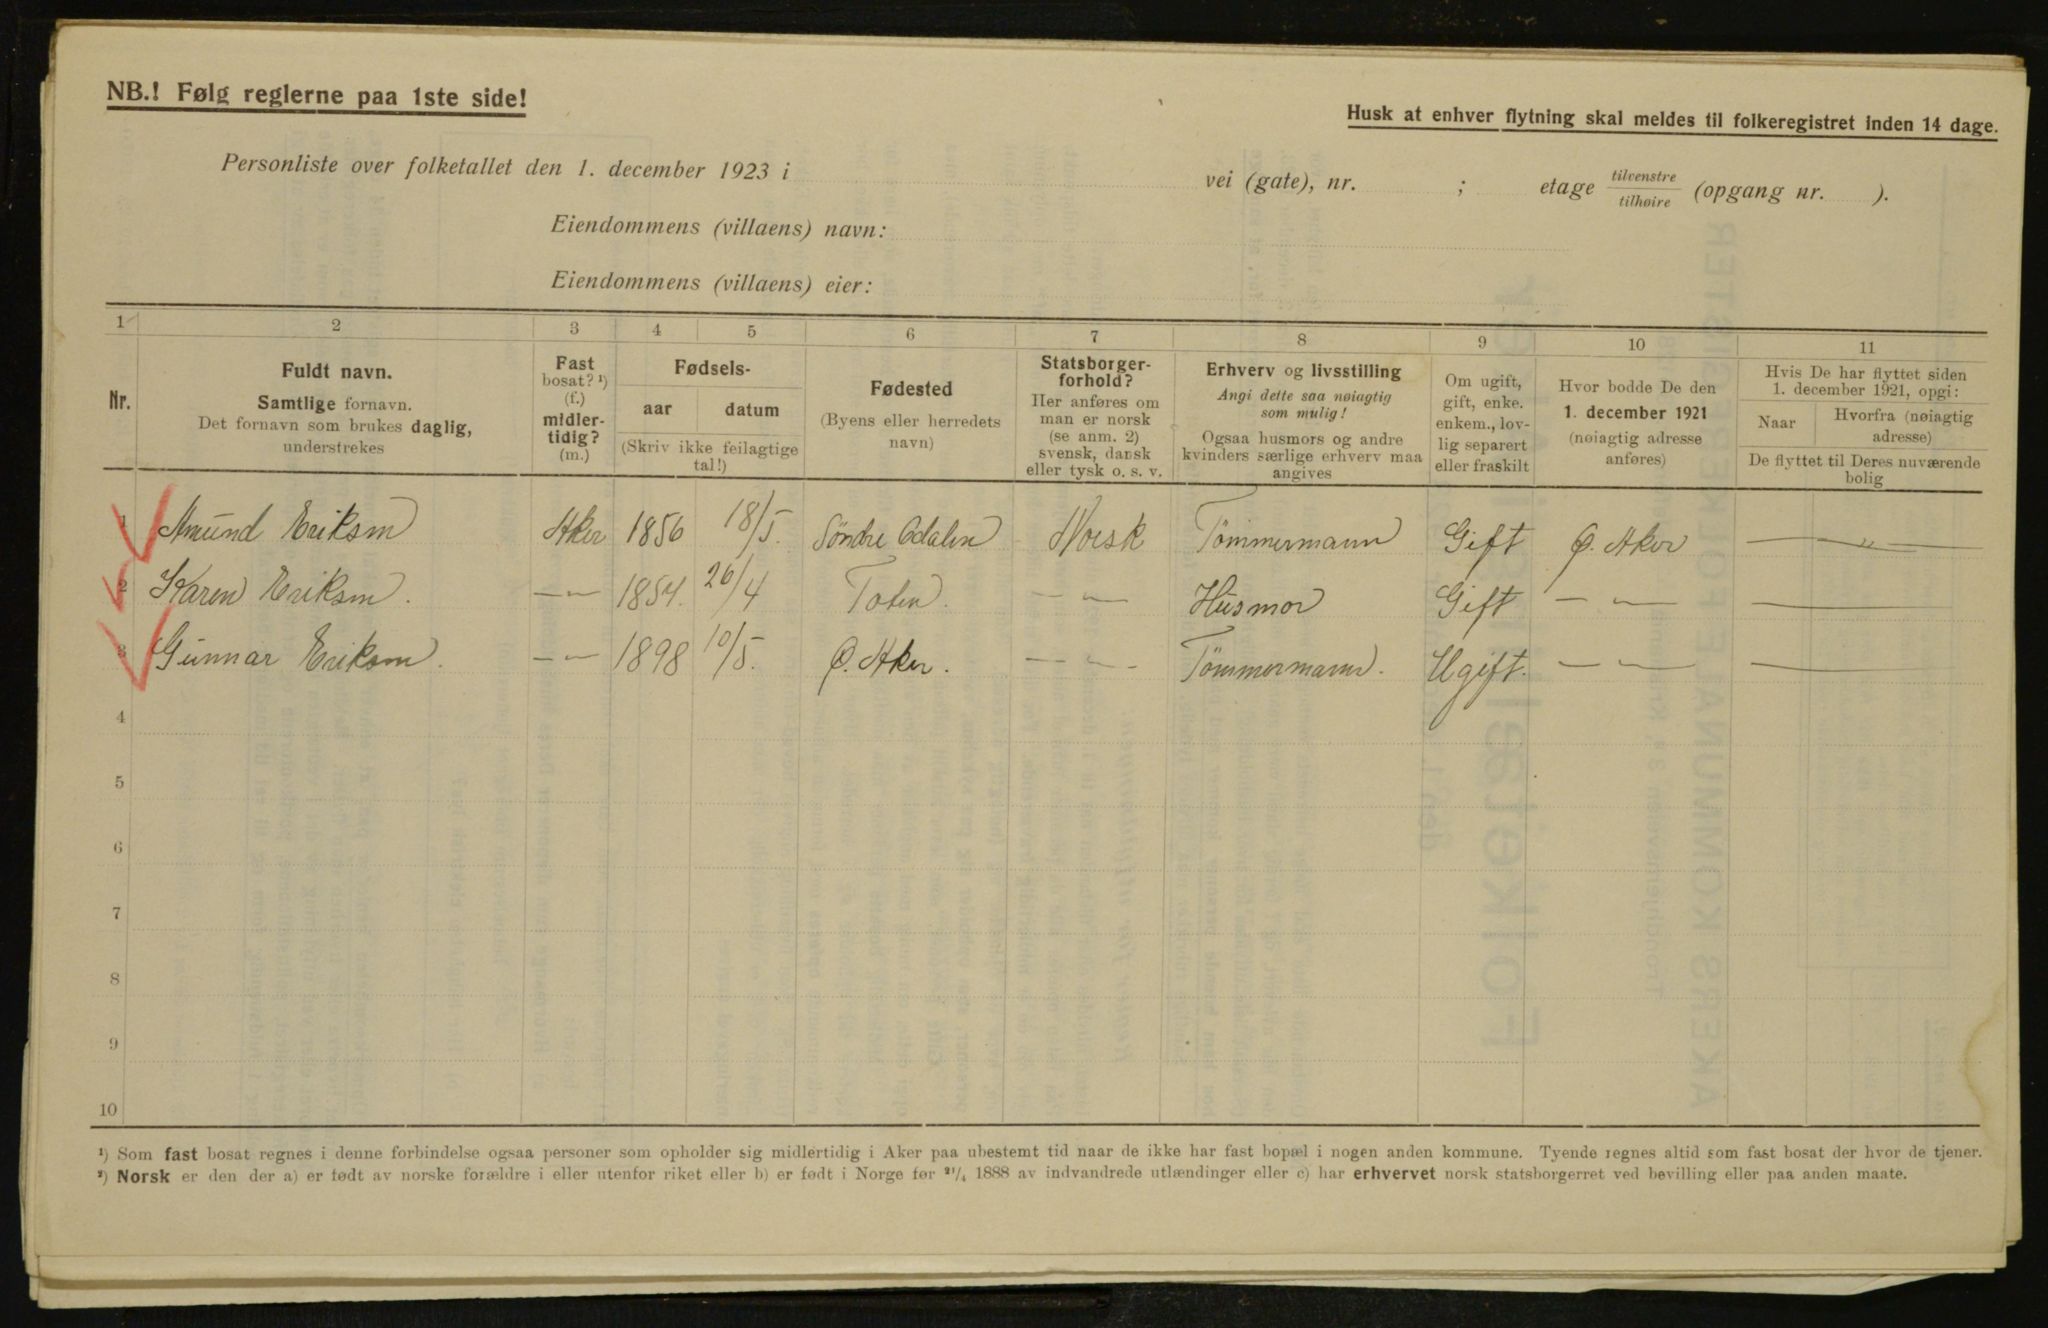 NB.! Følg reglerne paa 1ste side!
Husk at enhver flytning skal meldes til folkeregistret inden 14 dage.
Personliste over folketallet den 1. december 1923 i vei (gate), nr. ; etage tilvenstre tilhøire (opgang nr. ).
Eiendommens (villaens) navn:
Eiendommens (villaens) eier:
1 2 3 4 5 6 7 8 9 10 11
Nr.
Fuldt navn.
Samtlige fornavn.
Det fornavn som brukes daglig,
understrekes
Fast
bosat? ¹)
(f.)
midler-
tidig?
(m.)
Fødsels-
aar datum
(Skriv ikke feilagtige
tal!)
Fødested
(Byens eller herredets
navn)
Statsborger-
forhold?
Her anføres om
man er norsk
(se anm. 2)
svensk, dansk
eller tysk o. s. v.
Erhverv og livsstilling
Angi dette saa nøiagtig
som mulig!
Ogsaa husmors og andre
kvinders særlige erhverv maa
angives
Om ugift,
gift, enke.
enkem., lov-
lig separert
eller fraskilt
Hvor bodde De den
1. december 1921
(nøiagtig adresse
anføres)
Hvis De har flyttet siden
1. december 1921, opgi:
Naar
Hvorfra (nøiagtig
adresse)
De flyttet til Deres nuværende
bolig
1 Amund Eriksen Aker 1856 18/5. Söndre Odalen Norsk Tömmermann Gift Ø. Aker — „ —
2 Karen Eriksen. — — 1854. 26/4 Toten. — — Husmor Gift — — —
3 Gunnar Eriksen. — — 1898 10/5. Ø. Aker. — — Tömmermann. Ugift. — — —
4
5
6
7
8
9
10
¹) Som fast bosat regnes i denne forbindelse ogsaa personer som opholder sig midlertidig i Aker paa ubestemt tid naar de ikke har fast bopæl i nogen anden kommune. Tyende regnes altid som fast bosat der hvor de tjener.
²) Norsk er den der a) er født av norske forældre i eller utenfor riket eller b) er født i Norge før ²¹/₄ 1888 av indvandrede utlændinger eller c) har erhvervet norsk statsborgerret ved bevilling eller paa anden maate.